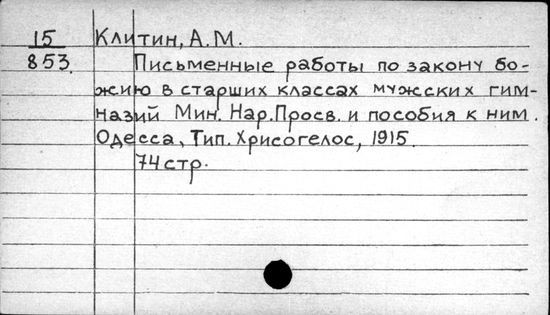 15 Клитин, А.М.
853. Письменные работы по закону бо-
жию в старших классах мужских гим-
назий Мин. Нар. Просв. и пособия к ним.
Одесса, Тип. Хрисогелос, 1915.
74 стр.